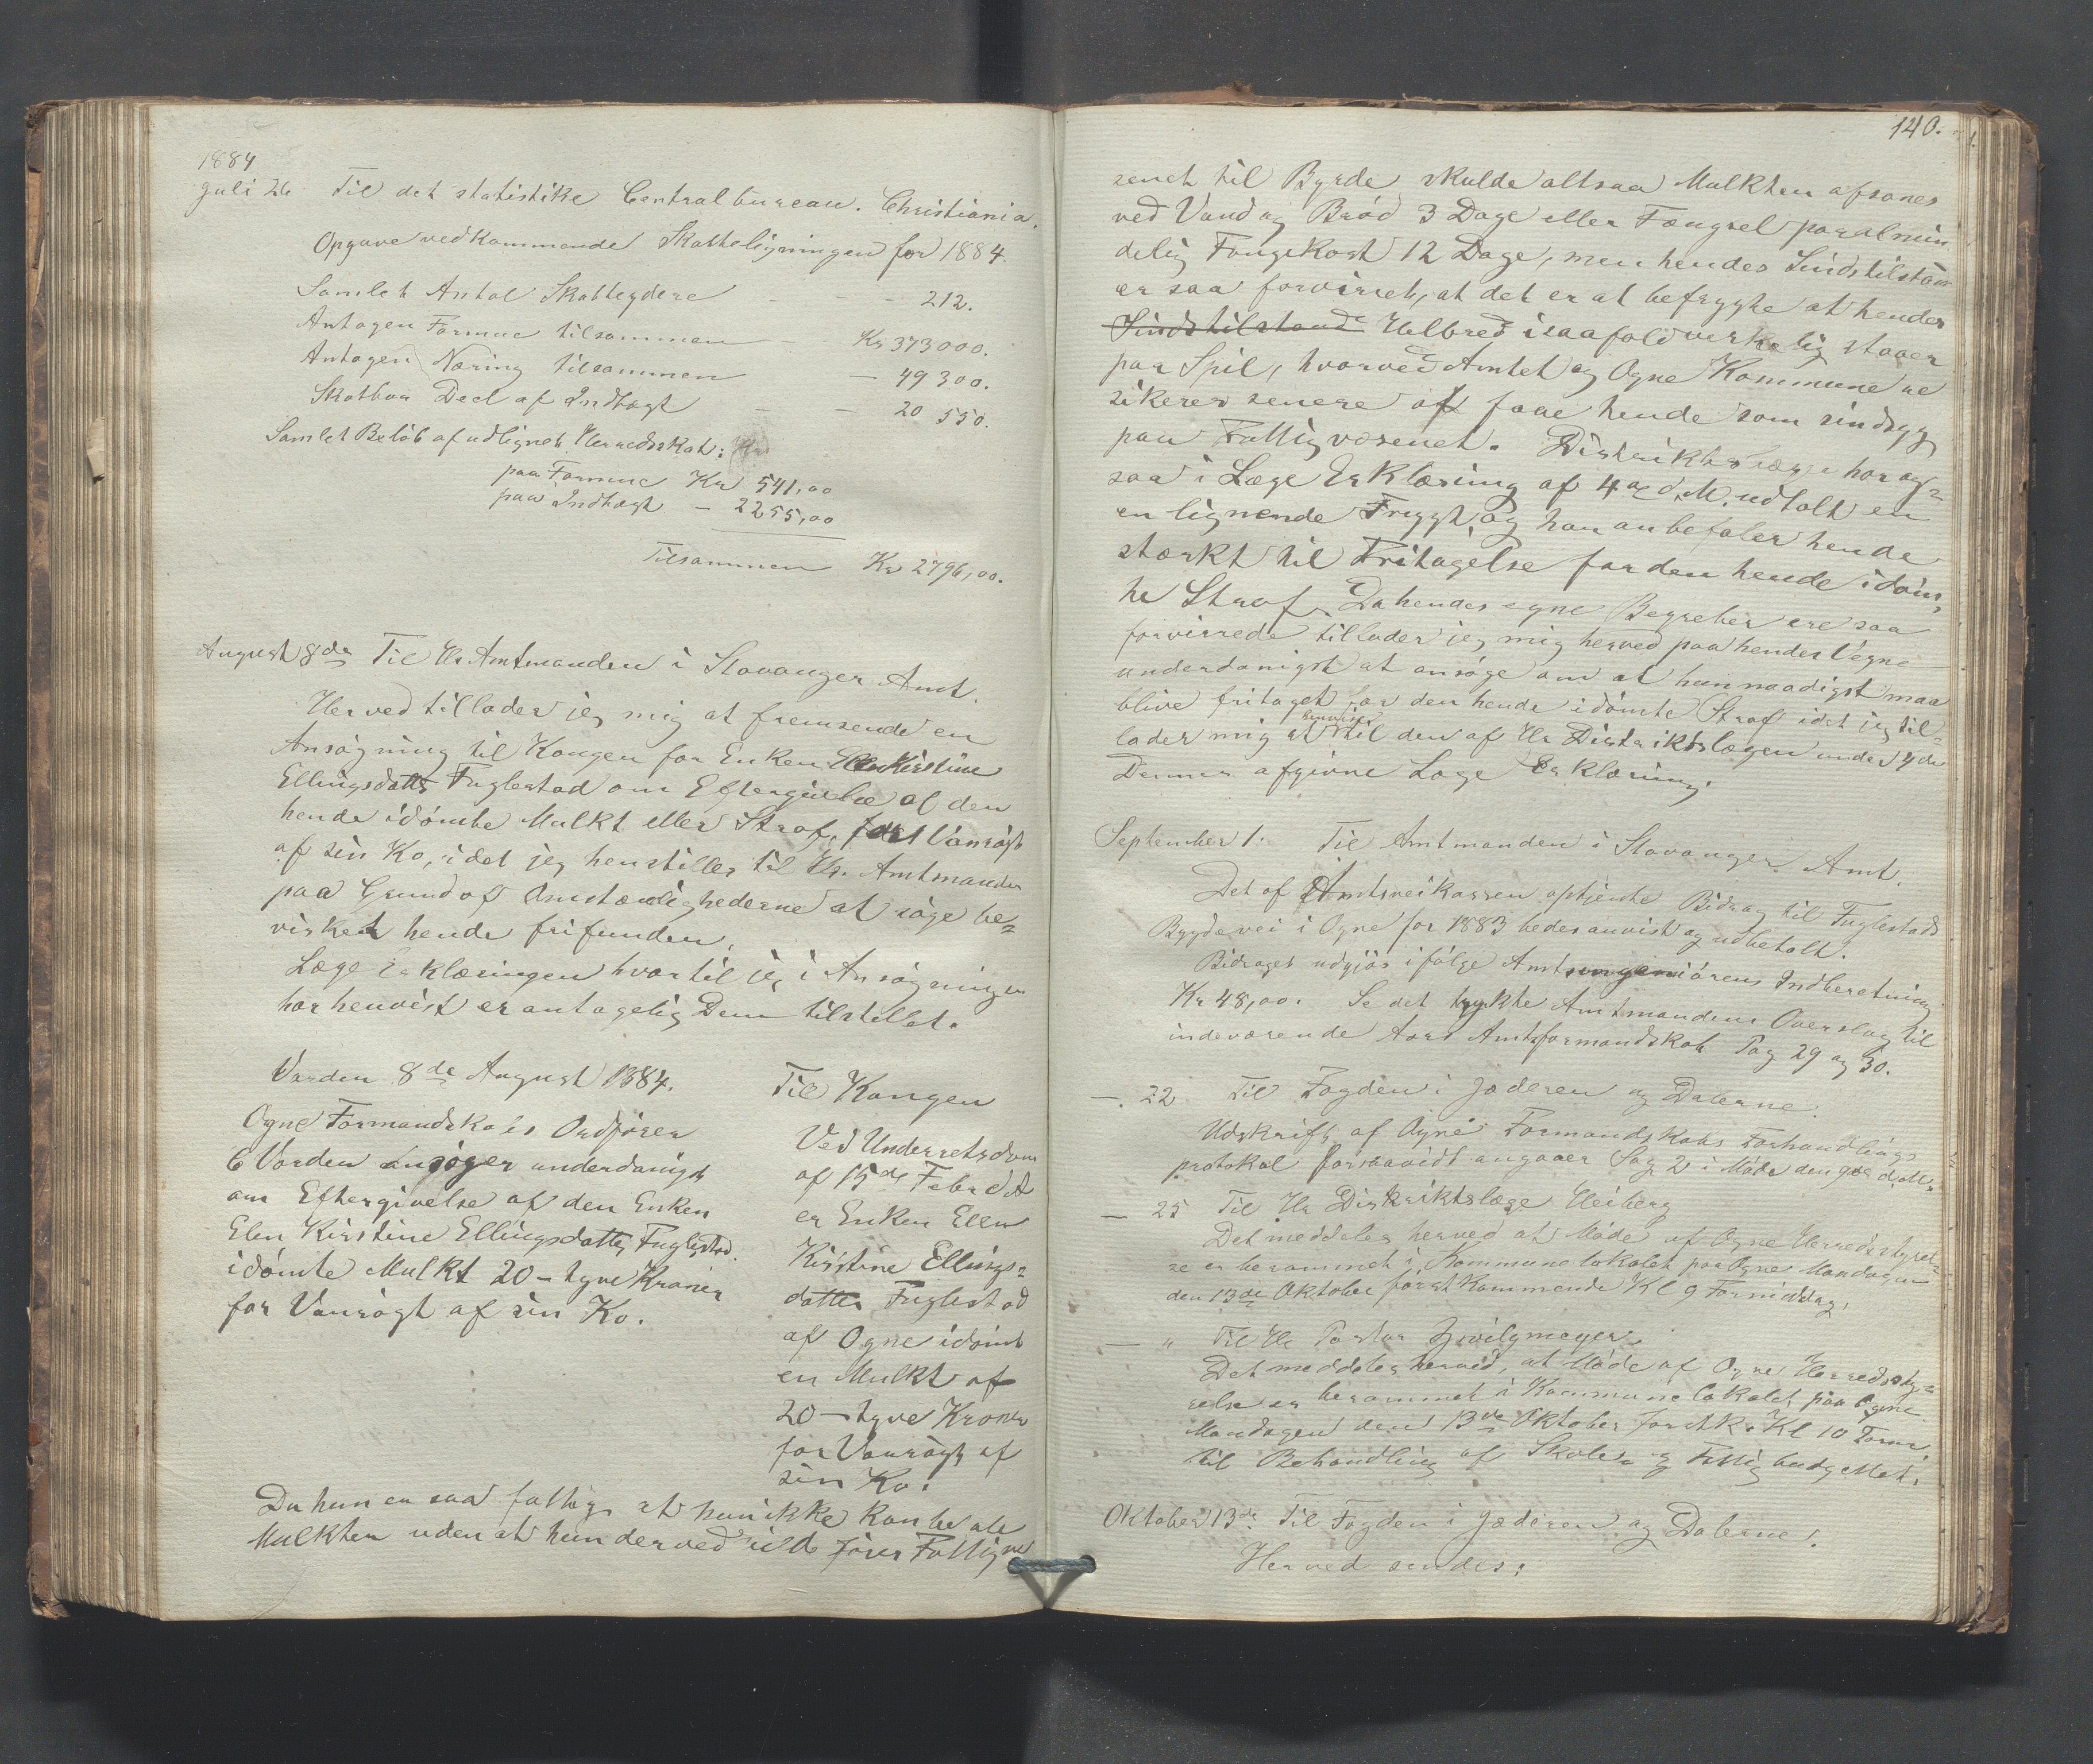 1884
Juli 26 Til det statistike Centralbureau. Christiania.
Opgave vedkommende Skatteligningen for 1884.
Samlet Antal Skatteydere - - - 212.
Antagen Formue tilsammen - Kr 373000.
Antagen Næring tilsammen - 49 300.
Skatbar Deel af Indtægt - - 20 550.
Samlet Beløb af udlignet Herredsskat:
paa Formue Kr 541,00
paa Indtægt - 2255,00
Tilsammen Kr 2796,00.
August 8de Til Hr Amtmanden i Stavanger Amt.
Herved tillader jeg mig at fremsende en
Ansøgning til Kongen for Enken Elen Kirstine
Ellingsdatter Fuglestad om Eftergivelse af den
hende idømte Mulkt eller Straf, for Vanrøgt
af sin Ko, idet jeg henstiller til Hr. Amtmanden
paa Grund af Omstændighederne at søge be=
virket hende frifunden.
Læge Erklæringen hvortil jeg i Ansøgningen
har henvist er antagelig Dem tilstillet.
Varden 8de August 1884.
Ogne Formandskabs Ordfører
C Varden ansøger underdanigst
om Eftergivelse af den Enken
Elen Kirstine Ellingsdatter Fuglestad
idømte Mulkt 20 - tyve Kroner
for Vanrøgt af sin Ko.
Til Kongen
Ved Underretsdom
af 15de Febr d A
er Enken Elen
Kirstine Ellings=
datter Fuglestad
af Ogne idømt
en Mulkt af
20 - tyve Kroner
for Vanrøgt af
sin Ko.
Da hun er saa fattig at hun ikke kan betale
Mulkten uden at hun derved vil føres Fattigvæ
140.
senet til Byrde skulde altsaa Mulkten afsones
ved Vand og Brød 3 Dage eller Fængsel paa almin
delig Fangekost 12 Dage, men hendes Sindstilstand
er saa forvirret, at det er at befrygte at hendes
Sindstilstand Helbred isaafald verkelig staaer
paa Spil, hvorved Amtet og Ogne Kommune re
sikerer senere at faae hende som sindsyg
paa Fattigvæsenet. Distriktslæge har og=
saa i Læge Erklæring af 4de d. M. udtalt en
en lignende Frygt, og han anbefaler hende
stærkt til Fritagelse for den hende idøm,
te Straf. Da hendes egne Begreber ere saa
forvirrede tillader jeg mig herved paa hendes Vegne
underdanigst at ansøge om at hun naadigst maa
blive fritaget for den hende idømte Straf idet jeg til=
lader mig at henvise til den af Hr Distriktslægen under 4de
Dennes afgivne Læge Erklæring.
September 1. Til Amtmanden i Stavanger Amt.
Det af Amtsveikassen optjente Bidrag til Fuglestads
Bygdevei i Ogne for 1883 bedes anvist og udbetalt.
Bidraget udgjør ifølge Amtsingeniørens Indberetning
Kr 48,00. Se det trykte Amtmandens Overslag til
indeværende Aars Amtsformandskab Pag 29 og 30.
-. 22 Til Fogden i Jæderen og Dalerne.
Udskrift af Ogne Formandskabs Forhandlings
protokol forsaavidt angaaer Sag 2 i Møde den 9de d. M.
- 25 Til Hr Distriktslæge Heiberg
Det meddeles herved at Møde af Ogne Herredsstyrel=
se er berammet i Kommunelokalet paa Ogne Mandagen
den 13de Oktober førstkommende Kl 9 Formiddag.
- " Til Hr Pastor Zwilgmeyer.
Det meddeles herved, at Møde af Ogne Herredssty=
relse er berammet i Kommunelokalet paa Ogne
Mandagen den 13de Oktober førstk. Kl 10 Form.
til Behandling af Skole- og Fattigbudgettet.
Oktober 13de Til Fogden i Jæderen og Dalerne.
Herved sendes: